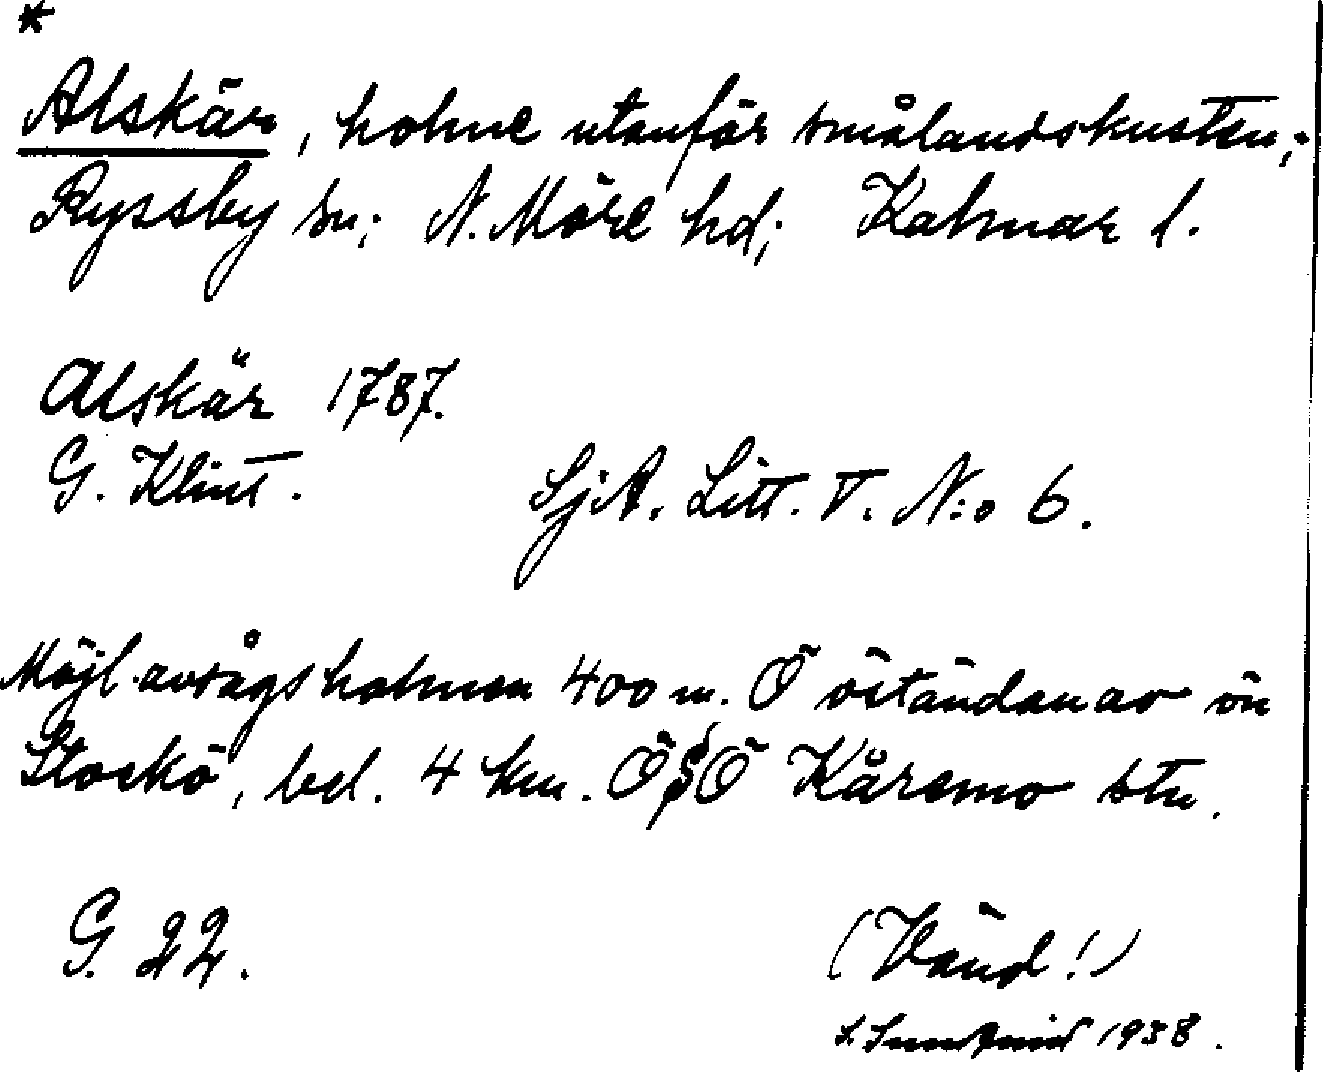 *
Alskär, holme utanför smålandskusten;
Ryssby sn; N. Möre hd; Kalmar l.
Alskär 1787.
G. Klint.
SjA. Litt. T. N:o 6.
Möjl. avsågs holmen 400 m. Ö öständan av ön
Stockö, bel. 4 km. ÖSÖ Kåremo stn.
G. 22.
(Vänd!)
S. Sundqvist 1938.